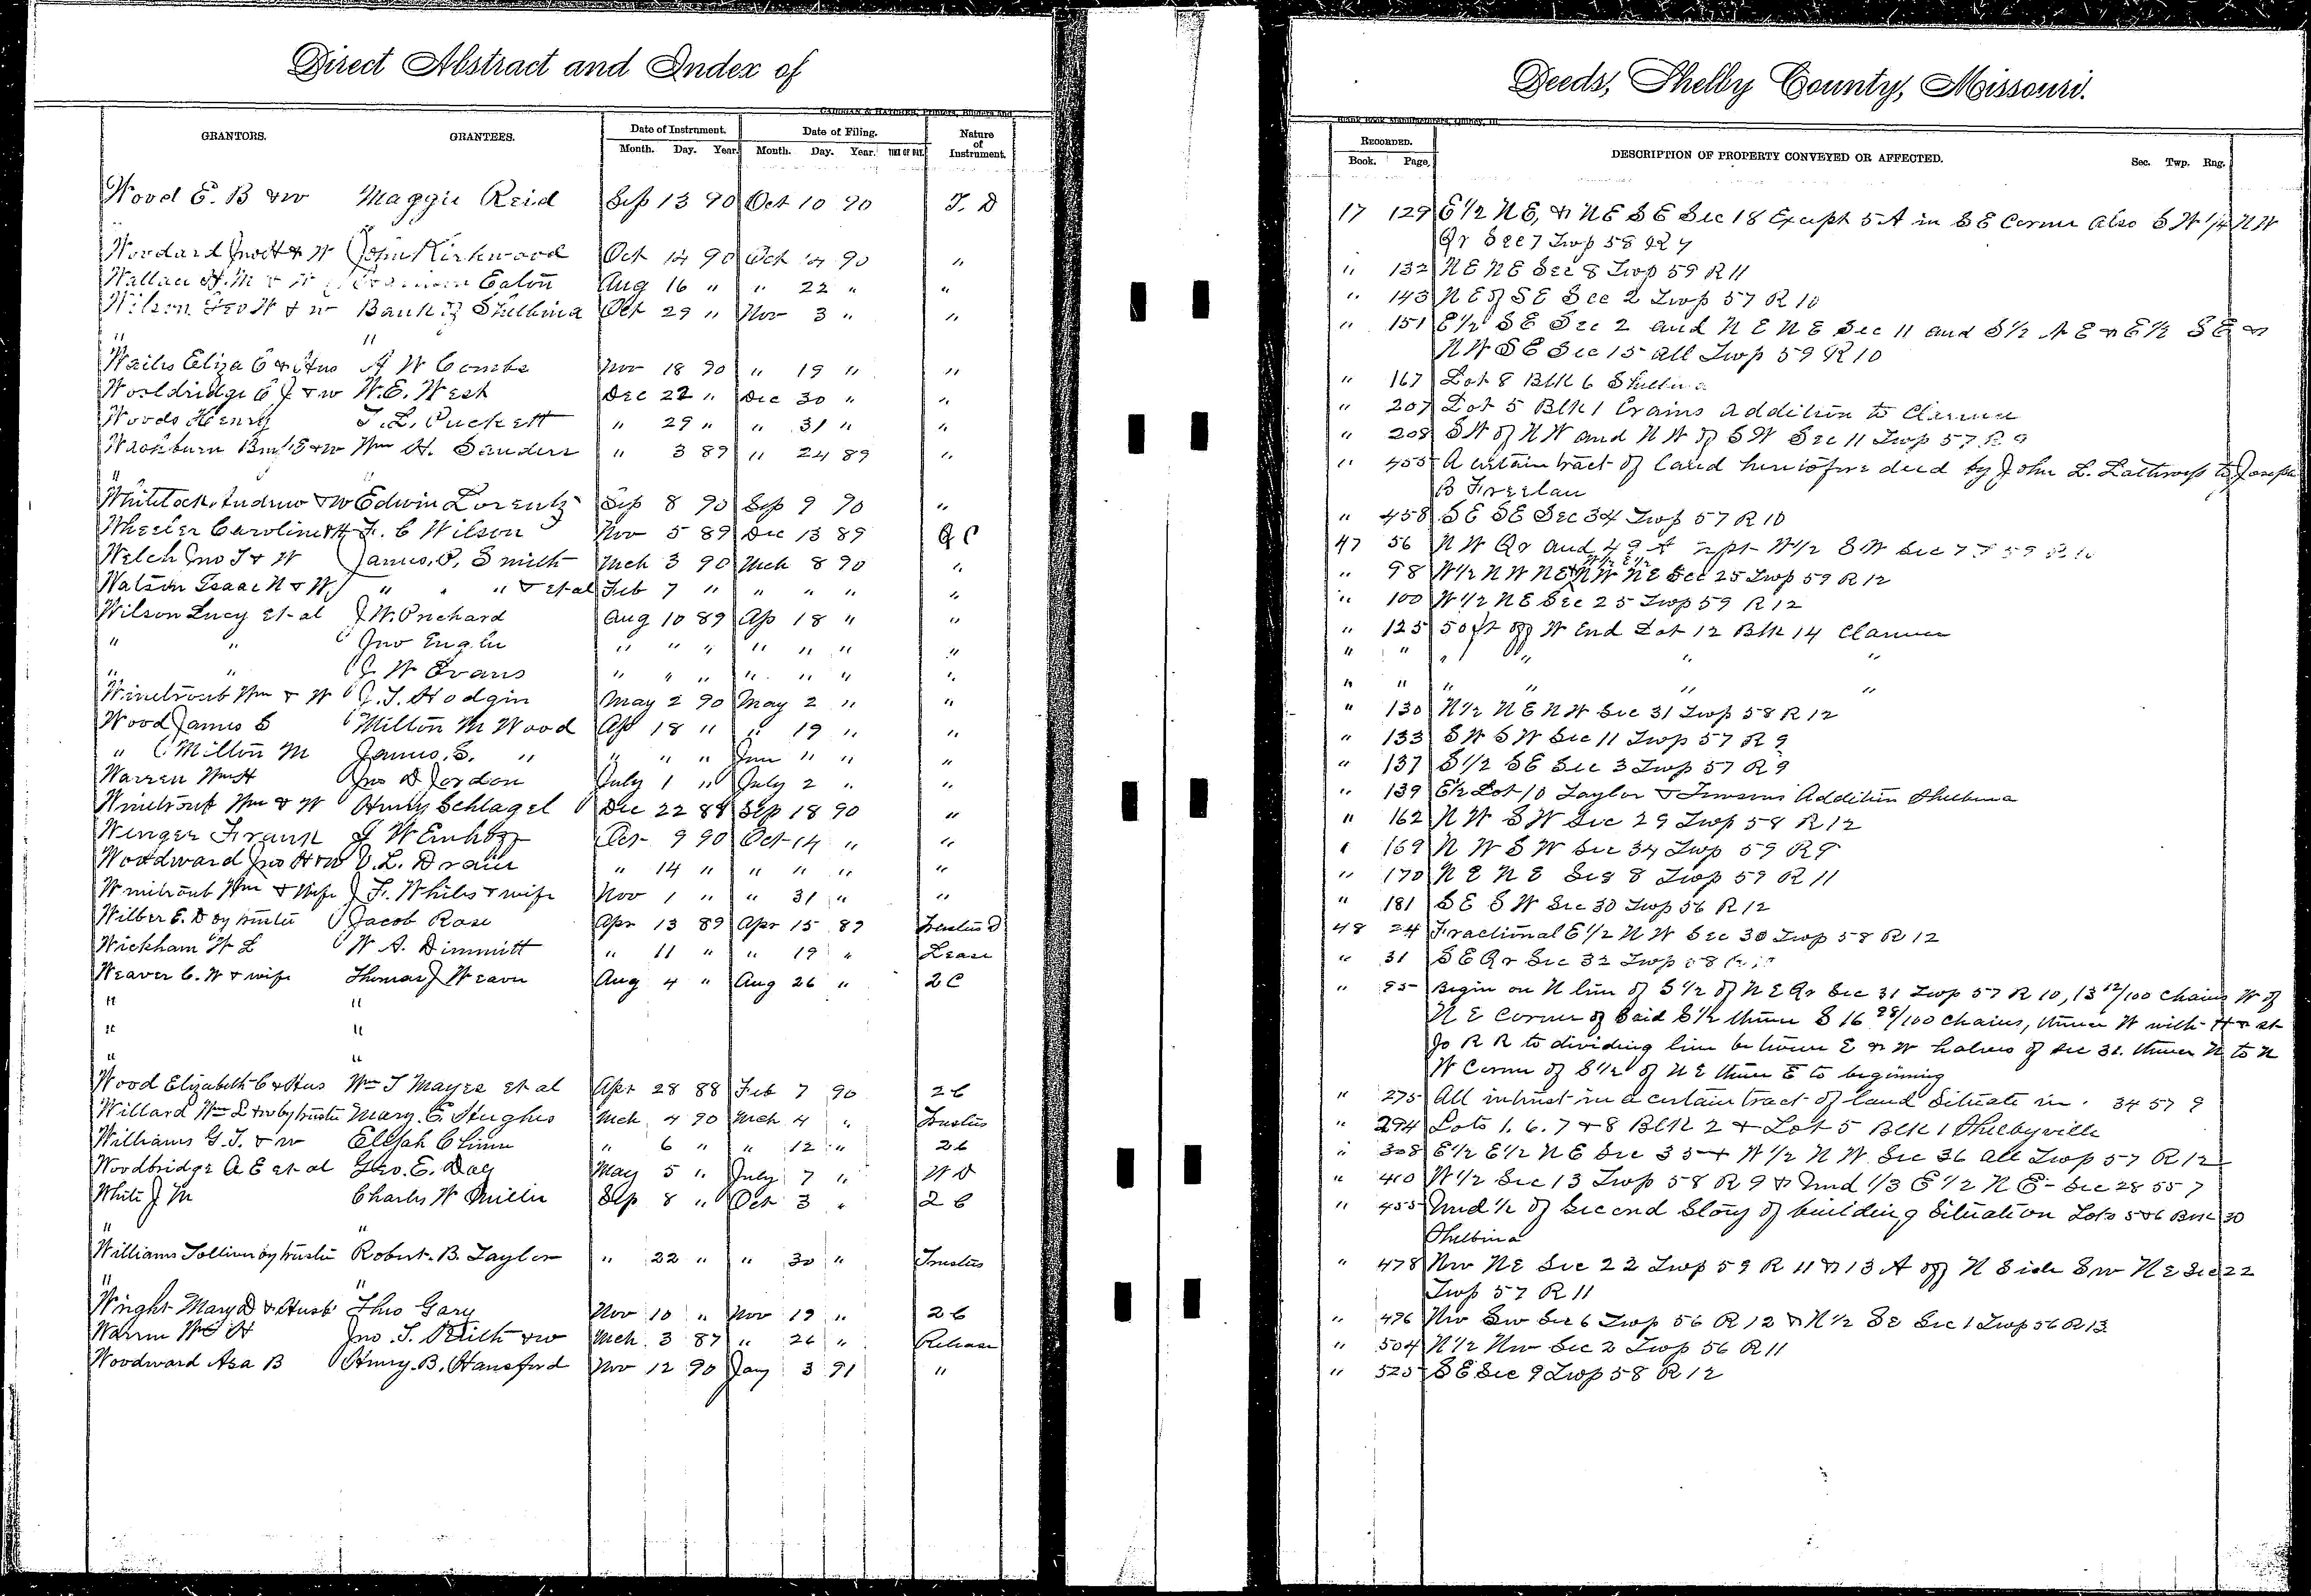 Direct Abstract and Index of
GRANTORS. GRANTEES. Date of Instrument. Date of Filing. Nature of Instrument.
Month. Day. Year. Month. Day. Year. TIME OF DAY.
Wood E. B & w Maggie Reid Sep 13 90 Oct 10 90 T. D
Woodard Jno H & W John Kirkwood Oct 14 90 Oct 14 90 "
Wallace H. M & W Eaton Aug 16 " " 22 " "
Wilson Geo W & w Bank of Shelbina Oct 29 " Nov 3 " "
" "
Wailes Eliza C & Hus A W Combs Nov 18 90 " 19 " "
Wooldridge C J & w W. E. West Dec 22 " Dec 30 " "
Woods Henry T. L. Puckett " 29 " " 31 " "
Washburn Benj E & w Wm H. Sanders " 3 89 " 24 89 "
"
Whitelock Andrew & W Edwin Lorentz Sep 8 90 Sep 9 90 "
Wheeler Caroline & H F. C Wilson Nov 5 89 Dec 13 89 Q C
Welch Jno T & W James. P. Smith Mch 3 90 Mch 8 90 "
Watson Isaac N & W " " " & et al Feb 7 " " " " "
Wilson Lucy et al J W. Prichard Aug 10 89 Ap 18 " "
" " Jno Engle " " " " " " "
" " J. W Evans " " " " " " "
Winetroub Wm & W J. T. Hodgin May 2 90 May 2 " "
Wood James S Milton M Wood Ap 18 " " 19 " "
" Milton M James. S. " " " " Jun " " "
Warren Wm H Jno D Jordon July 1 " July 2 " "
Winetrout Wm & W Henry Schlagel Dec 22 88 Sep 18 90 "
Winger Frank J W 9 90 Oct 14 " "
Woodward Jno H & W V. L. Drain " 14 " " " " "
Winetroub Wm & Wife J. F. Whiles & wife Nov 1 " " 31 " "
Wilber E. D by trustee Jacob Rose Apr 13 89 Apr 15 89 Trustees D
Wickham W L W A. Dimmitt " 11 " " 19 " Lease
Weaver C. W & wife Thomas J Weaver Aug 4 " Aug 26 " 2 C
" "
" "
" "
Wood Elizabeth C & Hus Wm T Mayes et al Apr 28 88 Feb 7 90 2 C
Willard Wm L & w by trustee Mary. E. Hughes Mch 4 90 Mch 4 " Trustees
Williams G. T. & w Elijah C Linn " 6 " " 12 " 2 C
Woodbridge A E et al Geo. E. Day May 5 " July 7 " W D
White J M Charles W Miller Sep 8 " Oct 3 " 2 C
" "
Williams Tolliver by trustee Robert. B. Taylor " 22 " " 30 " Trustees
" "
Wright Mary D & Husb Theo Gary Nov 10 " Nov 19 " 2 C
Warren W H Jno. T. & w Mch 3 87 " 26 " Release
Woodward Asa B Henry. B. Hansford Nov 12 90 Jany 3 91 "
Deeds, Shelby County, Missouri.
RECORDED. DESCRIPTION OF PROPERTY CONVEYED OR AFFECTED. Sec. Twp. Rng.
Book. Page.
17 129 E 1/2 N E, & N E S E Sec 18 Except 5 A in S E Corner also S W 1/4 N W
Qr Sec 7 Twp 58 R 9
" 132 N E N E Sec 8 Twp 59 R 11
" 143 N E of S E Sec 2 Twp 57 R 10
" 151 E 1/2 S E Sec 2 and N E N E Sec 11 and S 1/2 N E & E 1/2 S E &
N W S E Sec 15 all Twp 59 R 10
" 167 Lot 8 Blk 6 Shelbina
" 207 Lot 5 Blk 1 Crains Addition to Clarence
" 208 S W of N W and N W of S W Sec 11 Twp 57 R 9
" 455 A certain tract of land heretofore deed by John L. Lathrop to Joseph
B Freelan
" 458 S E S E Sec 34 Twp 57 R 10
47 56 N W Qr and 49 A pt W 1/2 S W Sec 7 T 59 R 10
" 98 W 1/2 N W N E & W 1/2 E 1/2 N W N E Sec 25 Twp 59 R 12
" 100 W 1/2 N E Sec 25 Twp 59 R 12
" 125 50 ft off W End Lot 12 Blk 14 Clarence
" " " " " "
" " " " " "
" 130 N 1/2 N E N W Sec 31 Twp 58 R 12
" 133 S W S W Sec 11 Twp 57 R 9
" 137 S 1/2 S E Sec 3 Twp 57 R 9
" 139 E 1/2 Lot 10 Taylor & Addition Shelbina
" 162 N W S W Sec 29 Twp 58 R 12
" 169 N W S W Sec 34 Twp 59 R 9
" 170 N E N E Sec 8 Twp 59 R 11
" 181 S E S W Sec 30 Twp 56 R 12
48 24 Fractional E 1/2 N W Sec 30 Twp 58 R 12
" 31 S E Qr Sec 32 Twp 58
" 95 Begin on N line of S 1/2 of N E Qr Sec 31 Twp 57 R 10, 13 12/100 chains W of
N E Corner of Said S 1/2 thence S 16 28/100 chains, thence W with H & St
Jo R R to dividing line between E & W halves of Sec 31. thence N to N
W Corner of S 1/2 of N E thence E to beginning
" 275 All intrust in a certain tract of land Situate in. 34 57 9
" 294 Lots 1. 6. 7 & 8 Blk 2 & Lot 5 Blk 1 Shelbyville
" 308 E 1/2 E 1/2 N E Sec 35 & W 1/2 N W Sec 36 all Twp 57 R 12
" 410 W 1/2 Sec 13 Twp 58 R 9 & Und 1/3 E 1/2 N E - Sec 28 55 7
" 455 Und 1/2 of Second Story of building Situation Lots 5 & 6 Blk 30
Shelbina
" 478 Nw NE Sec 22 Twp 59 R 11 & 13 A off N Side Sw NE Sec 22
Twp 57 R 11
" 496 Nw Sw Sec 6 Twp 56 R 12 & N 1/2 SE Sec 1 Twp 56 R 13
" 504 N 1/2 Nw Sec 2 Twp 56 R 11
" 525 S E Sec 9 Twp 58 R 12